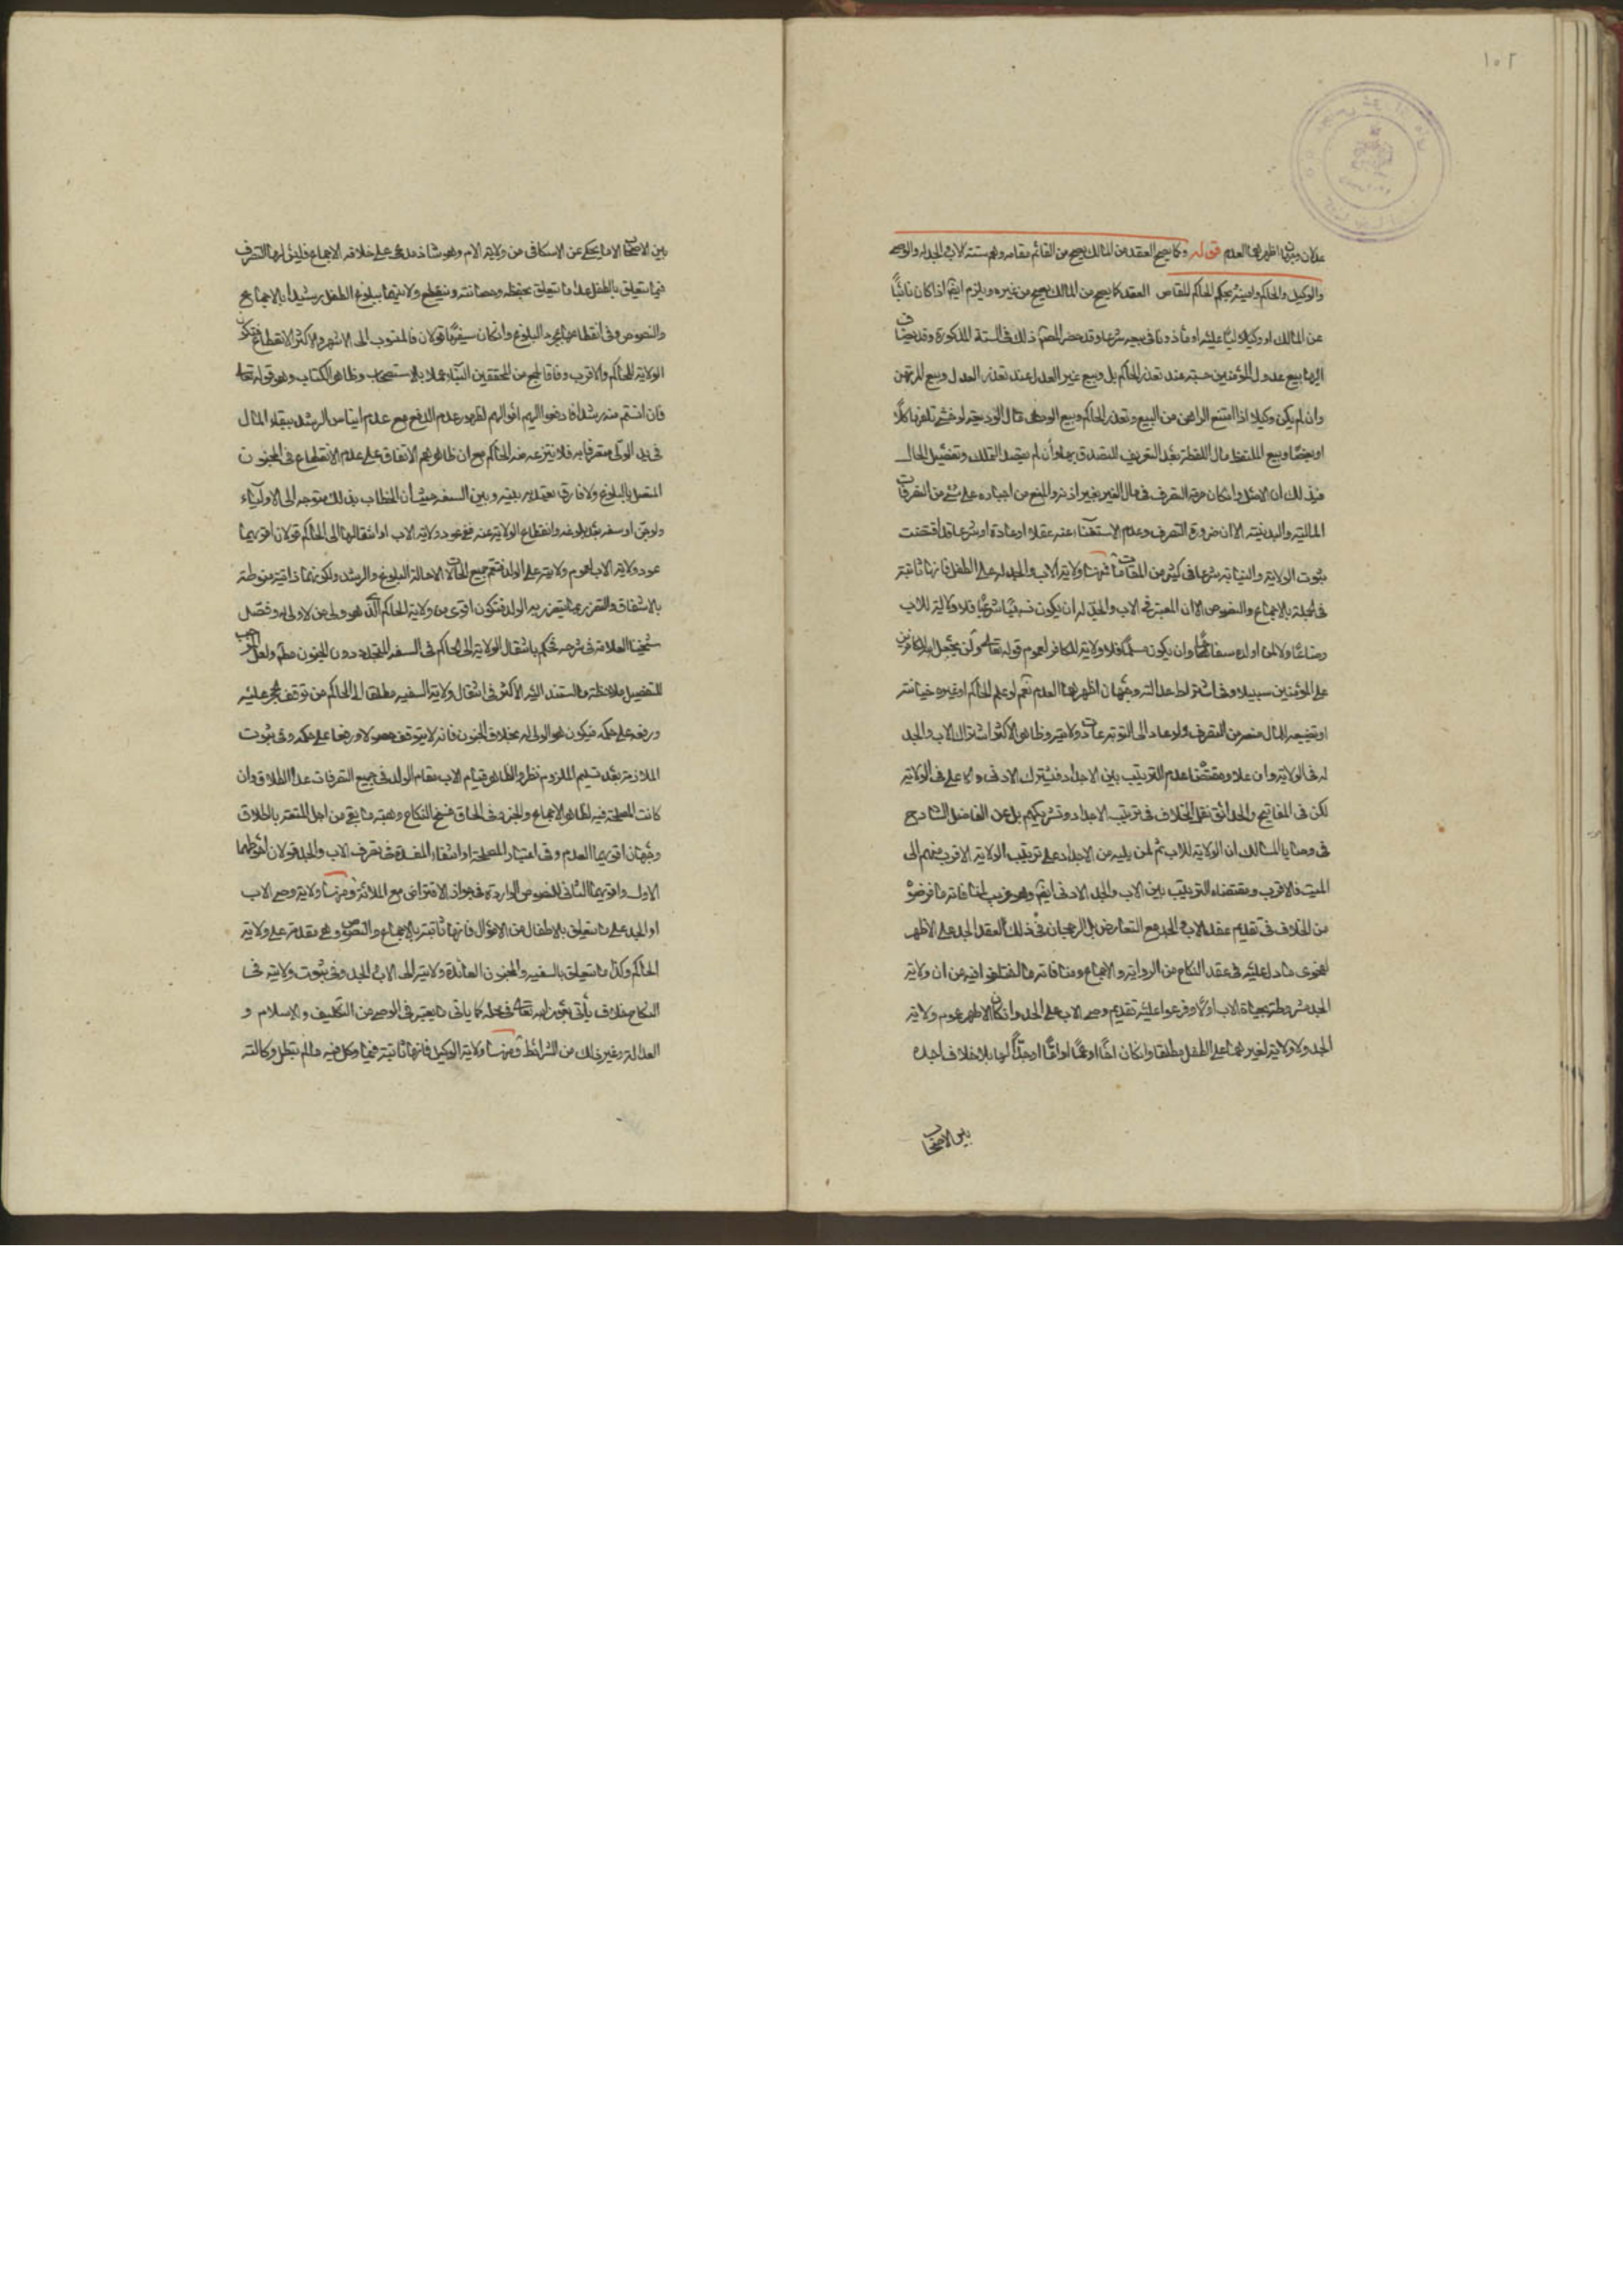 ١٠٢
عدلان وجهان اظهرهما العدم قوله وكما يصح العقد من المالك يصح من القائم مقامه وهم ستة الاب والجد له والوصى
والوكيل والحاكم وامينه وبحكم الحاكم المقاص العقد كما يصح من المالك يصح من غيره ويلزم ايضا اذا كان نائبا
عن المالك او وكيلا او وليا عليه او ماذونا فى بيعه شرعا وقد حصر المصنف ذلك فى الستة المذكورة وقد يضاف
اليها بيع عدول المؤمنين حسبة عند تعذر الحاكم بل وبيع غير العدل عند تعذر العدل وبيع المرتهن
وان لم يكن وكيلا اذا امتنع الراهن من البيع وتعذر الحاكم وبيع الودعى مال الوديعة لو خشى تلفها كلا
او بعضا وبيع الملتقط مال اللقطة بعد التعريف للتصدق بها وان لم يقصد التملك وتفصيل الحال
فى ذلك ان الاصل وان كان حرمة التصرف فى مال الغير بغير اذنه والمنع من اجباره على شئ من التصرفات
المالية والبدنية الا ان ضرورة التصرف وعدم الاستغناء عنه عقلا او عادة او شرعا قد اقتضت
ثبوت الولاية والنيابة شرعا فى كثير من المقامات فمنها ولاية الاب والجد له على الطفل فانها ثابتة
فى الجملة بالاجماع والنصوص الا ان المعتبر فى الاب والجد له ان يكون نسبيا شرعيا فلا ولاية للاب
رضاعا ولا لمن اولده سفاحا وان يكون مسلما فلا ولاية للكافر لعموم قوله تعالى ولن يجعل الله للكافرين
على المؤمنين سبيلا وفى اشتراط عدالته وجهان اظهرهما العدم نعم لو علم الحاكم او غيره خيانته
او تضييعه المال منعه من التصرف ولو عاد الى التوبة عادت ولايته وظاهر الاكثر اشتراك الاب والجد
له فى الولاية وان علا ومقتضاه عدم الترتيب بين الاجداد فيشترك الادنى والاعلى فى الولاية
لكن فى المفاتيح والحدائق نقل الخلاف فى ترتيب الاجداد وتشريكهم بل عن الفاضل الشارح
فى وصايا المسالك ان الولاية للاب ثم لمن يليه من الاجداد على ترتيب الولاية الاقرب منهم الى
الميت فالاقرب ومقتضاه الترتيب بين الاب والجد الادنى ايضا وهو غريب لمنافاته ما فرضوه
من الخلاف فى تقديم عقد الاب والجد مع التعارض بل الرجحان فى ذلك العقد الجد على الاظهر
لفحوى ما دل عليه فى عقد النكاح من الرواية والاجماع ومنافاته ما اختلفوا فيه من ان ولاية
الجد مشروطة بحياة الاب اولا وفرعوا عليه تقديم وصى الاب على الجد وان كان الاظهر عموم ولاية
الجد ولا ولاية لغيرهما على الطفل مطلقا وان كان اخا او عما او اما او جدا لها بلا خلاف اجده
بين الاصحاب
بين الاصحاب الا ما يحكى عن الاسكافى من ولاية الام وهو شاذ مدعى على خلافه الاجماع فليس لها التصرف
فيما يتعلق بالطفل عدا ما يتعلق بحفظه وحضانته وينقطع ولايتهما ببلوغ الطفل رشيدا بالاجماع
والنصوص وفى انقطاعها بمجرد البلوغ وان كان سفيها قولان فالمنسوب الى الاشهر والاكثر الانقطاع فتكون
الولاية للحاكم والاقرب وفاقا لجمع من المحققين البقاء عملا بالاستصحاب وظاهر الكتاب وهو قوله تعالى
فان انستم منهم رشدا فادفعوا اليهم اموالهم لظهور عدم الدفع مع عدم ايناس الرشد ببقاء المال
فى يد الولى متصرفا به فلا ينتزعه منه الحاكم مع ان ظاهرهم الاتفاق على عدم الانقطاع فى الجنون
المتصل بالبلوغ ولا فارق يعتد به بينه وبين السفه حيث ان الخطاب بذلك متوجه الى الاولياء
ولو جن او سفه بعد بلوغه وانقطاع الولاية عنه ففى عود ولاية الاب او انتقالها الى الحاكم قولان اقويهما
عود ولاية الاب لعموم ولايته على الولد فتعم جميع الحالات الا حالة البلوغ والرشد ولكونها ذاتية منوطة
بالاشفاق والتضرر بما يتضرر به الولد فتكون اقوى من ولاية الحاكم الذى هو ولى من لا ولى له وفصل
شيخنا العلامة فى شرحه فحكم بانتقال الولاية الى الحاكم فى السفه المتجدد دون الجنون مطلقا ولعل الموجب
للتفصيل ملاحظة ما استند اليه الاكثر فى انتقال ولاية السفيه مطلقا الى الحاكم من توقف الحجر عليه
ورفعه على حكمه فيكون هو الولى له بخلاف الجنون فانه لا يتوقف حصولا ورفعا على حكمه وفى ثبوت
الملازمة بعد تسليم الملزوم نظر والظاهر قيام الاب مقام الولد فى جميع التصرفات عدا الطلاق وان
كانت المصلحة فيه لظاهر الاجماع والخبر وفى الحاق فسخ النكاح وهبة ما بقى من اجل المتعة بالطلاق
وجهان اقويهما العدم وفى اعتبار المصلحة او انتفاء المفسدة فى تصرف الاب والجد قولان احوطهما
الاول واقويهما الثانى للنصوص الواردة فى جواز الاقتراض مع الملائة ومنها ولاية وصى الاب
او الجد على ما يتعلق بالاطفال من الاموال فانها ثابتة بالاجماع والنصوص وهى مقدمة على ولاية
الحاكم وكذا ما يتعلق بالسفيه والمجنون العائدة ولايته الى الاب والجد وفى ثبوت ولايته فى
النكاح خلاف يأتى بعون الله تعالى فى محله كما يأتى ما يعتبر فى الوصى من التكليف والاسلام و
العدالة وغير ذلك من الشرائط ومنها ولاية الوكيل فانها ثابتة فيما وكل فيه ما لم تبطل وكالته